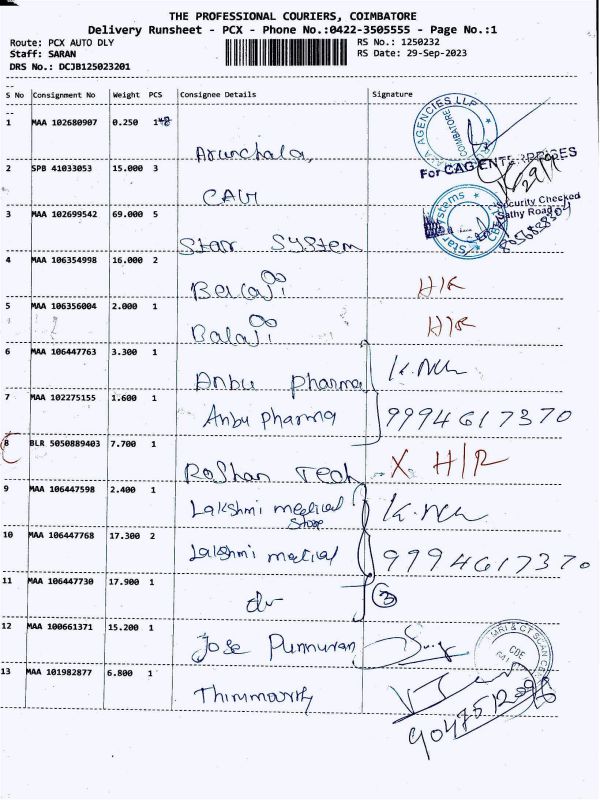 THE PROFESSIONAL COURIERS, COIMBATORE
Delivery Runsheet - PCX - Phone No.:0422-3505555 - Page No.:1
Route: PCX AUTO DLY
RS No.: 1250232
Staff: SARAN
RS Date: 29-Sep-2023
DRS No.: DCJB125023201
S No Consignment No Weight PCS Consignee Details Signature
1 MAA 102680907 0.250 1
AGENCIES LLP
COIMBATORE
Arunchala,
For CAG ENTERPRISES
2 SPB 41033053 15.000 3
CAG
Security Checked
Sathy Road
3 MAA 102699542 69.000 5
Star Systems
Star System
4 MAA 106354998 16.000 2
Balaji H/R
5 MAA 106356004 2.000 1
Balaji H/R
6 MAA 106447763 3.300 1
Anbu Pharma
7 MAA 102275155 1.600 1
Anbu Pharma 9994617370
8 BLR 5050889403 7.700 1
Roshan Tech X H/R
9 MAA 106447598 2.400 1
Lakshmi medical
Store
10 MAA 106447768 17.300 2
Lakshmi medical 9994617370
11 MAA 106447730 17.900 1
do 3
12 MAA 100661371 15.200 1
MRI & CT SCAN
CBE
Jose
13 MAA 101982877 6.800 1